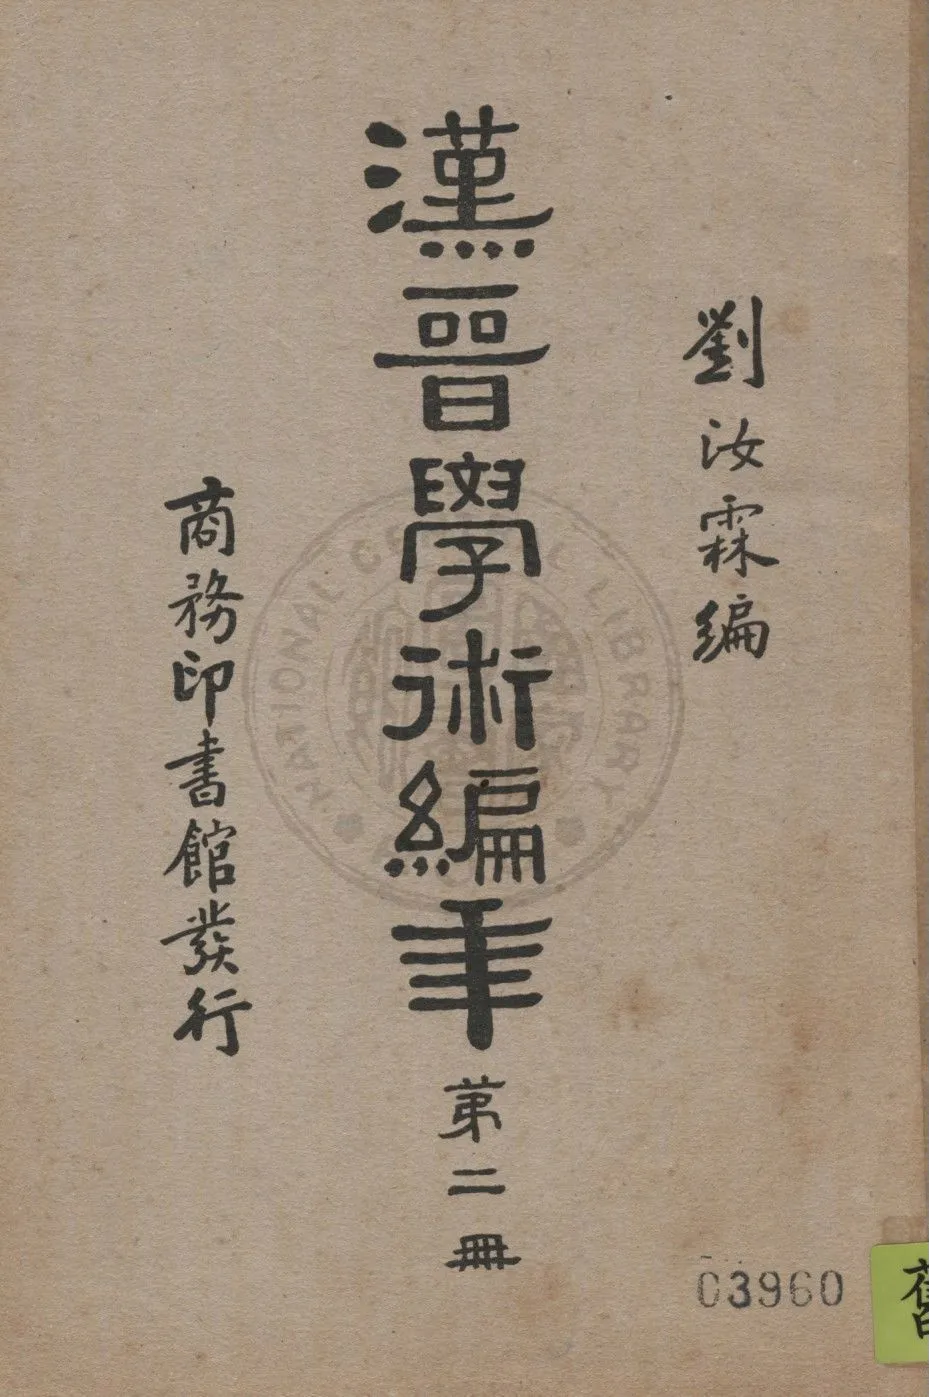 劉汝霖編
漢晉學術編年 第二冊
商務印書館發行
NATIONAL CENTRAL LIBRARY
03960
舊